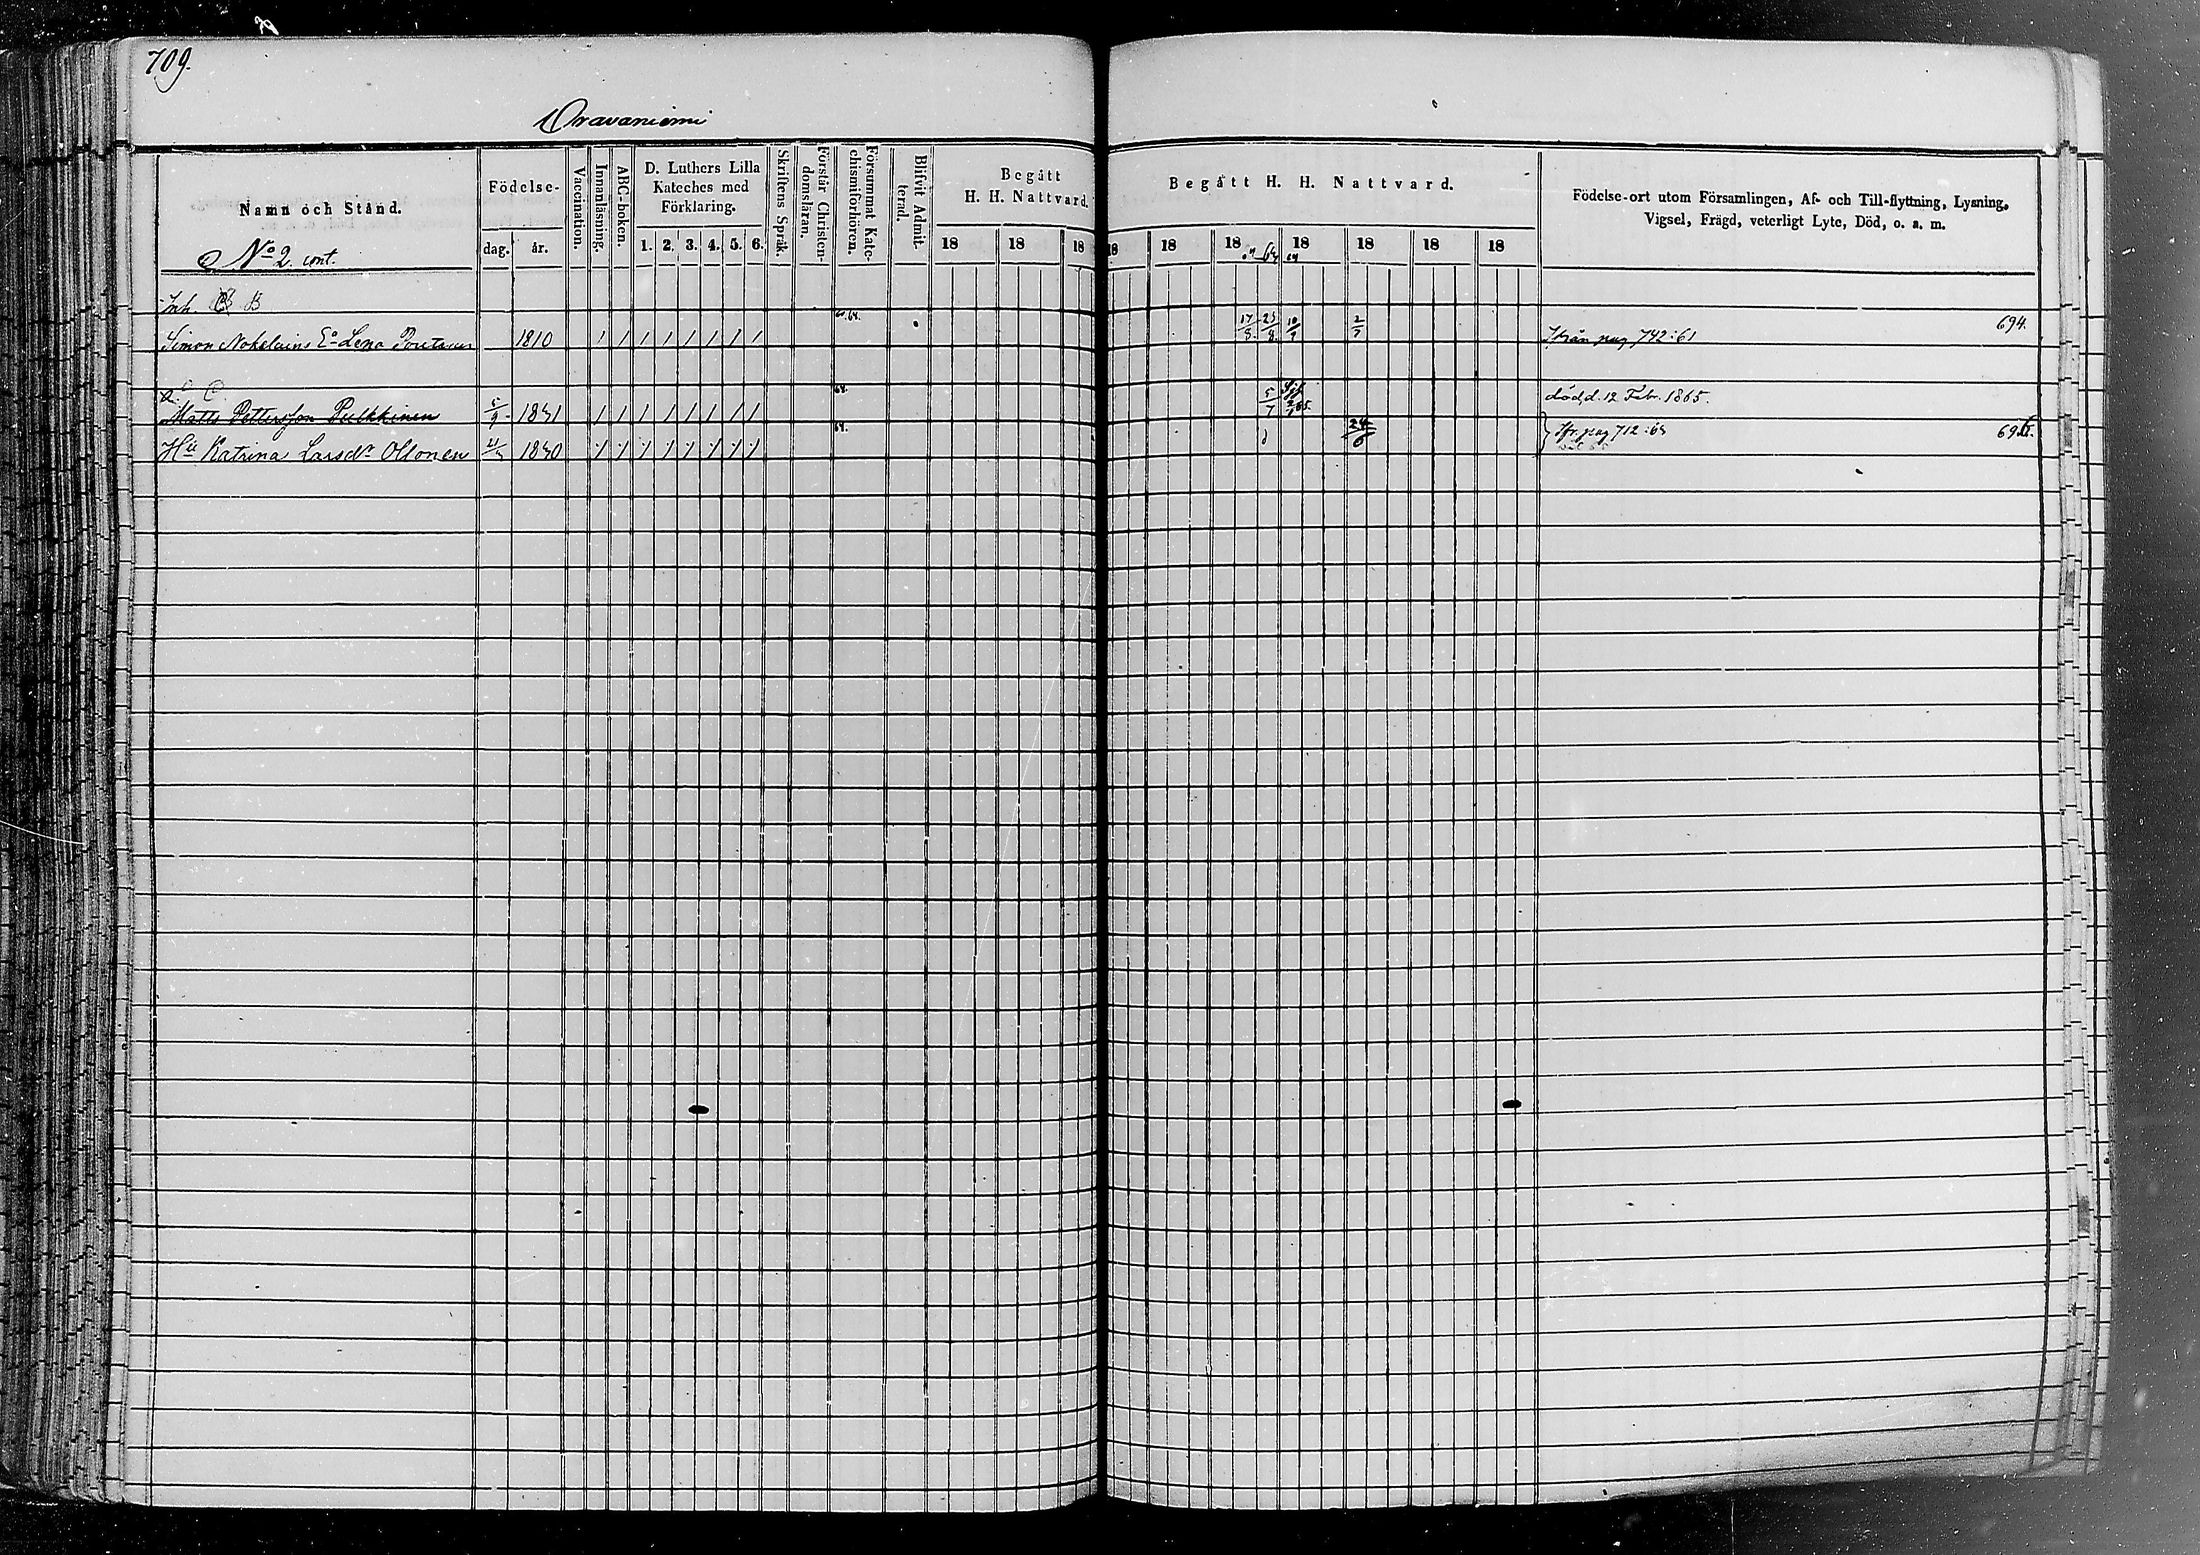 709.
Oravaniemi
Namn och Stånd.
Födelse-
dag.
år.
Vaccination.
Innanläsning.
ABC-boken.
D. Luthers Lilla
Kateches med
Förklaring.
1. 2. 3. 4. 5. 6.
Skriftens Språk.
Förstår Christen-
domsläran.
Försummat Kate-
chismiförhören.
Blifvit Admit-
terad.
Begått
H. H. Nattvard.
18 18 18
Begått H. H. Nattvard.
18 18 18 18 18 18 18
64
Födelse-ort utom Församlingen, Af- och Till-flyttning, Lysning,
Vigsel, Frägd, veterligt Lyte, Död, o. a. m.
No 2. cont.
Inh. B
Simon Nokelains Lena 1810 / / / / / / / / 64. 17/3. 23/8. 10/9 2/7 Från pag 742:61 694.
C.
Matts Pettersson Pulkkinen 5/9 - 1841 / / / / / / / / 64. 5/7 död d. 12 Febr. 1865.
Hu Katrina Larsdr Ollonen 1840 / / / / / / / / 64. 24/6 fr. pag 712:64